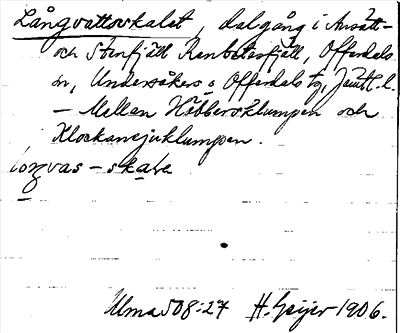 Långvattsskalet, dalgång i Ansätt-
och Stenfjäll Renbetesfjäll, Offerdals
sn, Undersåkers o Offerdals tg, Jämtl. l.
– Mellan Häbbersklumpen och
Klockanejuklumpen.
loŋvas-skaɫe
Ulma 508:27 H. Geijer 1906.